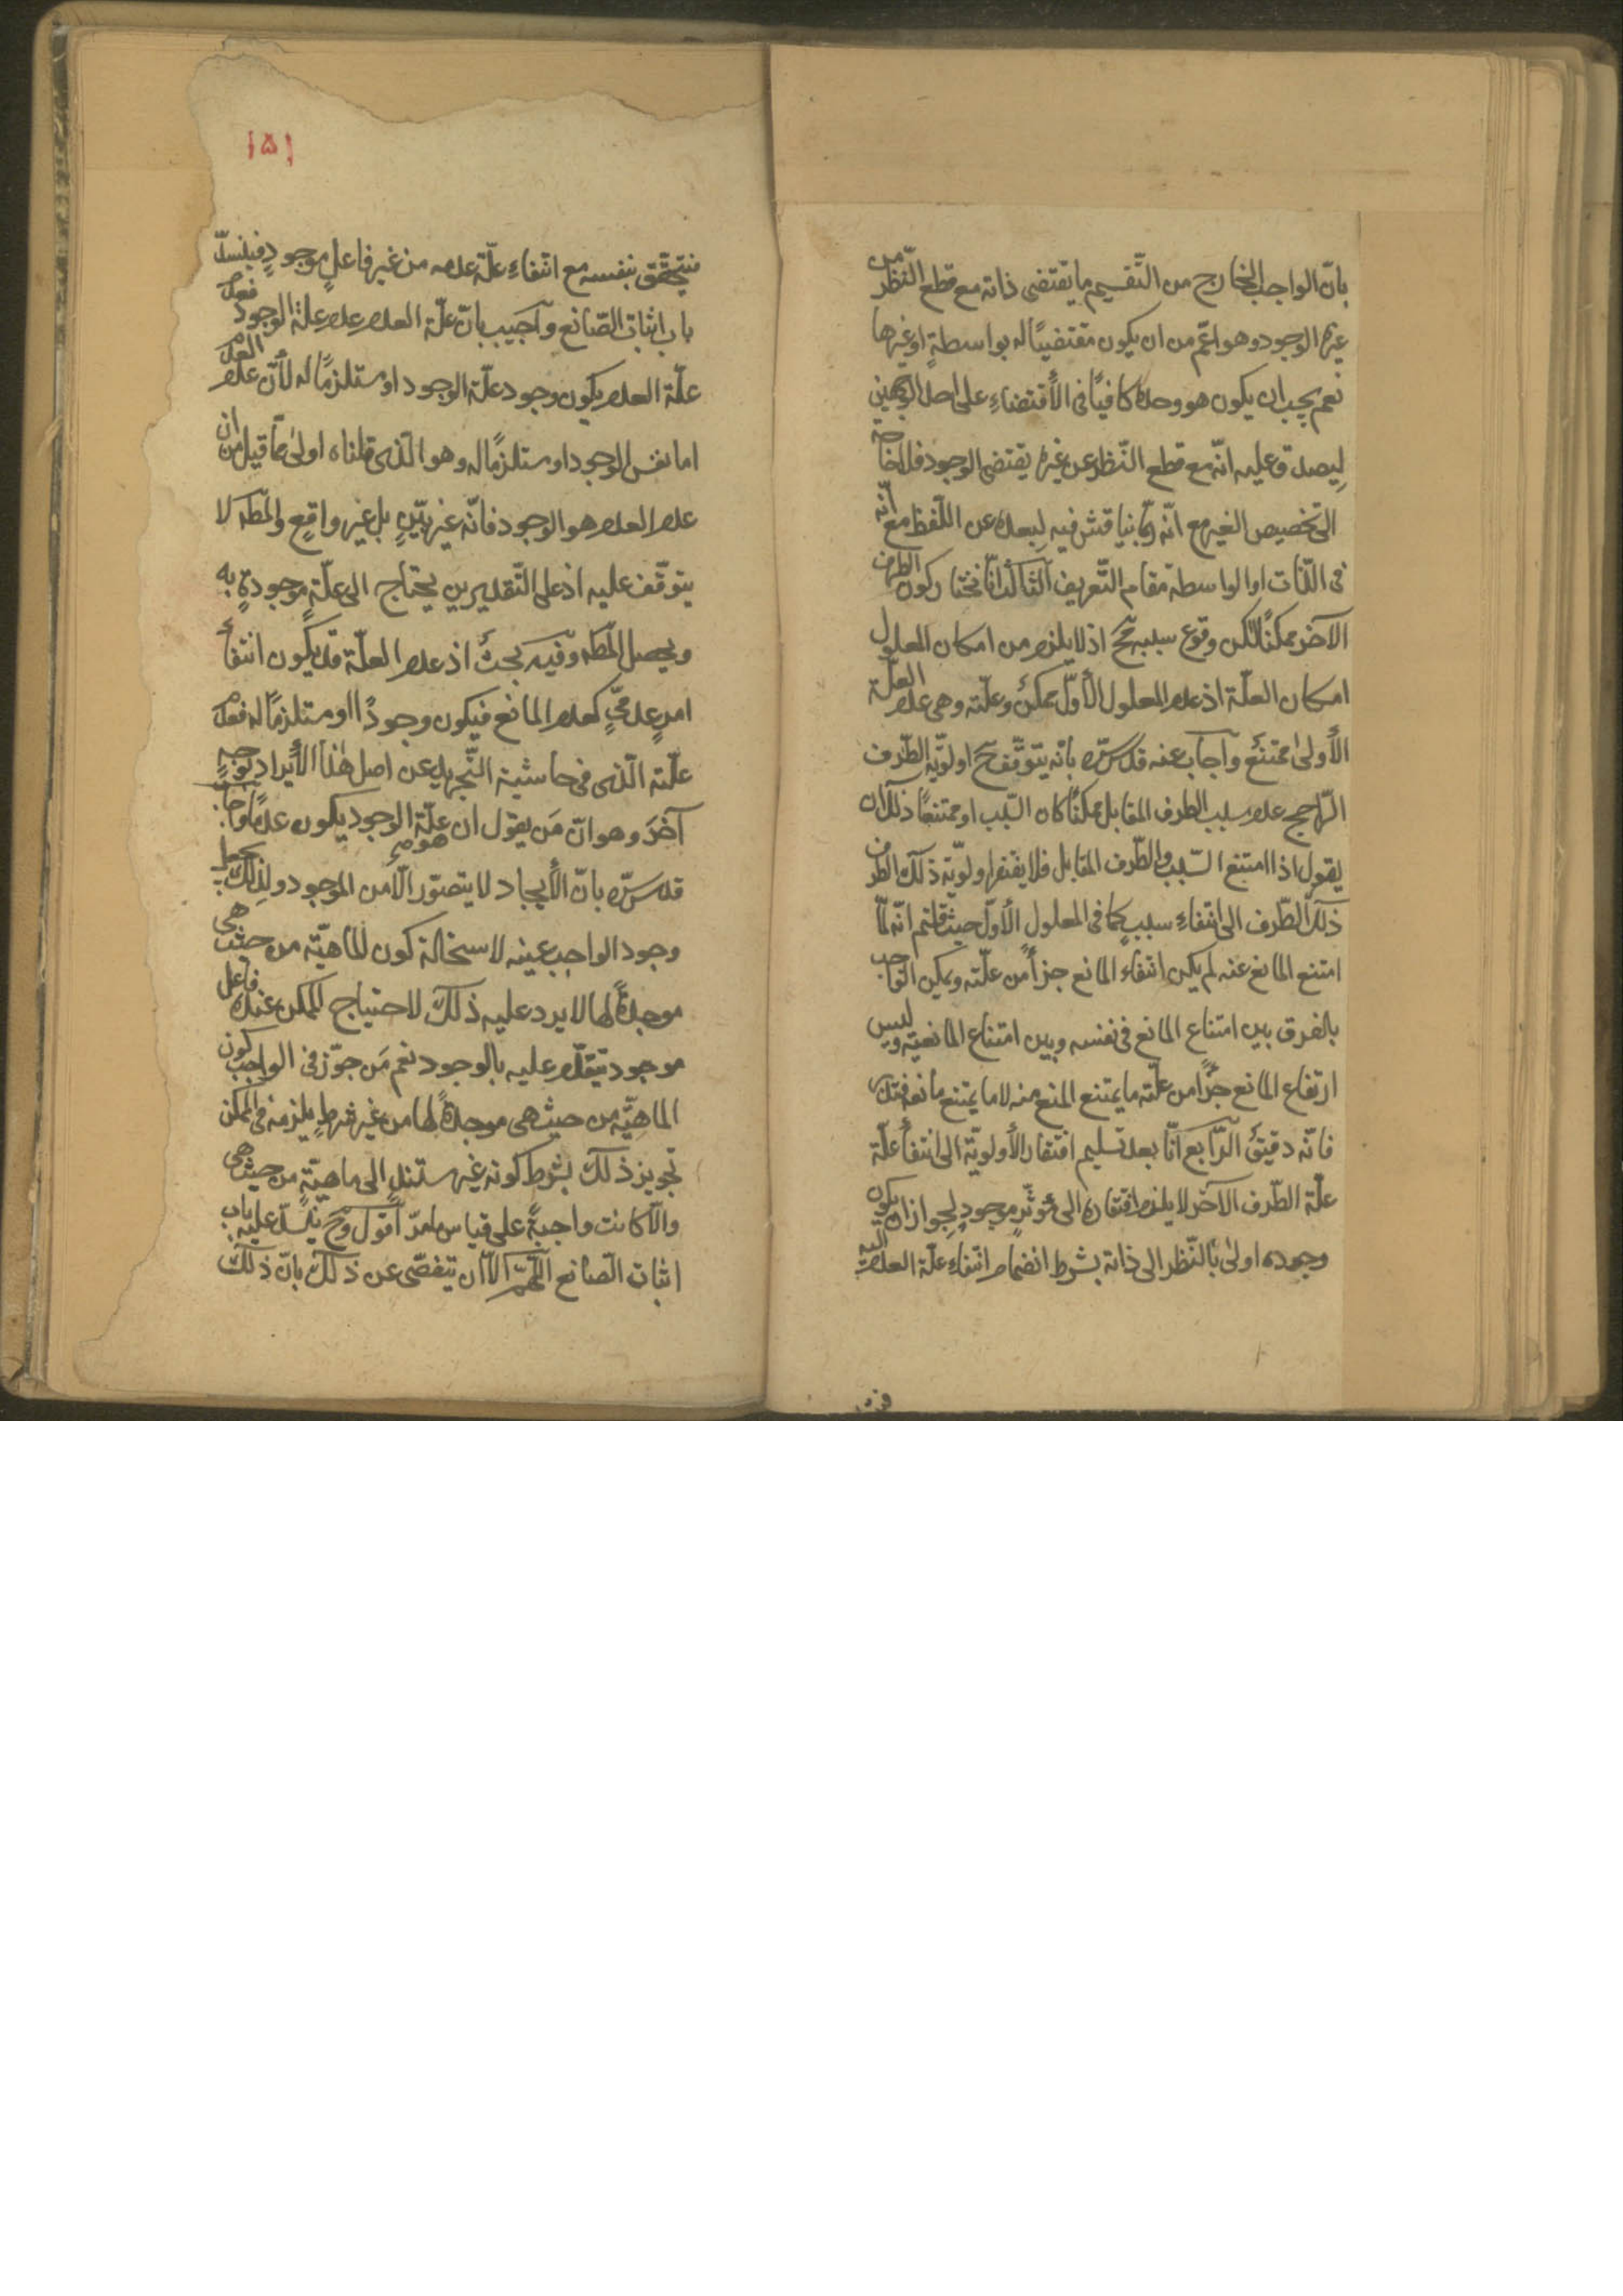 بانّ الواجب الخارج من التّقسيم ما يقتضى ذاته مع قطع النّظر من
غيره الوجود وهو اعمّ من ان يكون مقتضيًا له بواسطةٍ او غيرها
نعم يجب ان يكون هو وحده كافيًا فى الأقتضاءِ على اصل الوجهين
لِيصدق عليه انّه مع قطع النّظر عن غيره يقتضى الوجود فلا حاجة
الى تخصيص الغير مع انّه ربّما يناقش فيه لِبعده عن اللّفظ مع انّه
فى الذّات او الواسطة مقام التّعريف الثّالث انّا نختار كون الطرف
الآخر ممكنًا لكن وقوع سببه مح اذ لا يلزم من امكان المعلول
امكان العلّة اذ عدم المعلول الأوّل ممكنٌ وعلّته وهى عدم العلّة
الأولىٰ ممتنعٌ وآجاب عنه قدّس سرّه بانّه يتوقّف ح اولويّة الطّرف
الرّاجح عدم سبب الطرف المقابل ممكنًا كان السّبب او ممتنعًا ذلك ان
يقول اذا امتنع السّبب والطّرف المقابل فلا يفتقر اولويّة ذلك الطرف
ذلك الطّرف الى انتفاءِ سببٍ كما فى المعلول الأوّل حيث قلتم انّه لمّا
امتنع المانع عنه لم يكن انتفاء المانع جزأً من علّته ويمكن الجواب
بالفرق بين امتناع المانع فى نفسه وبين امتناع المانعيّة وليس
ارتفاع المانع جزأً من علّته ما يمتنع المنع منه لا ما يمتنع مانعه فتدبّر
فانّه دقيقٌ الرّابع انّا بعد تسليم افتقار الأولويّة الى انتفأ علّة
علّة الطّرف الآخر لا يلزم افتقاره الى مؤثّرٍ موجودٍ لِجواز ان يكون
وجوده اولىٰ بالنّظر الى ذاته بشرط انضمام انتفاءِ علّة العدم اليه
فيتحقّق بنفسه مع انتفاءِ علّة عدمه من غير فاعلٍ موجودٍ فينسدّ
باب اثبات الصّانع وآجيب بانّ علّة العدم عدم علّة الوجود فعدم
علّة العدم يكون وجود علّة الوجود او مستلزمًا له لأنّ عدم العدم
اما نفس الوجود او مستلزمًا له وهو الّذى قلناه اولىٰ ممّا قيل من ان
عدم العدم هو الوجود فانّه غير بيّنٍ بل غير واقعٍ والمّطه لا
يتوقّف عليه اذ على التّقديرين يحتاج الى علّةٍ موجودةٍ به
ويحصل المّطه وفيه بحثٌ اذ عدم العلّة قد يكون انتفأ
امرٍ عدمىٍّ كعدم المانع فيكون وجودًا او مستلزمًا له فعدم
علّته الّذى فى حاشية التّجريد عن اصل هٰذا الأيراد بوجه
آخرَ وهو انّ مَن يقول ان علّة الوجود يكون عدمًا
قدّس سرّه بانّ الأيجاد لا يتصوّر الّا من الموجود ولِذلك يجعل
وجود الواجب عينه لاستحالة كون الماهيّة من حيث هى
موجدةً لها لا يرد عليه ذلك لاحتياج الممكن عنده فاعل
موجود يتقدّم عليه بالوجود نعم مَن جوّز فى الواجب كون
الماهيّة من حيث هى موجدةً لها من غير شرطٍ يلزمه فى الممكن
تجويز ذلك بشرط كونه غير مستندٍ الى ماهيّةٍ من حيث هى
والّا كانت واجبةً على قياس ما مرّ اقول وح ينسدّ عليه باب
اثبات الصّانع اللّهمّ الّا ان يتفصّى عن ذلك بانّ ذلك